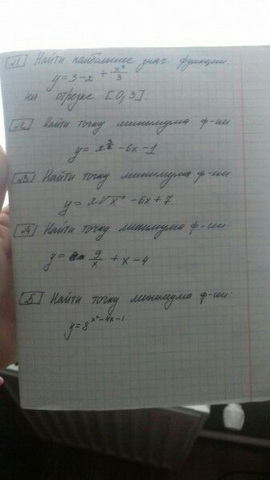 №1 Найти наибольшее знач. функции
y = 3 - x + x³/3
на отрезке [0, 3].
№2 Найти точку минимума ф-ии
y = x^(3/2) - 6x - 1
№3 Найти точку минимума ф-ии
- 6x + 7
№4 Найти точку минимума ф-ии:
y = 9/x + x - 9
№5 Найти точку минимума ф-ии:
y = 8^(x² - 4x - 1)